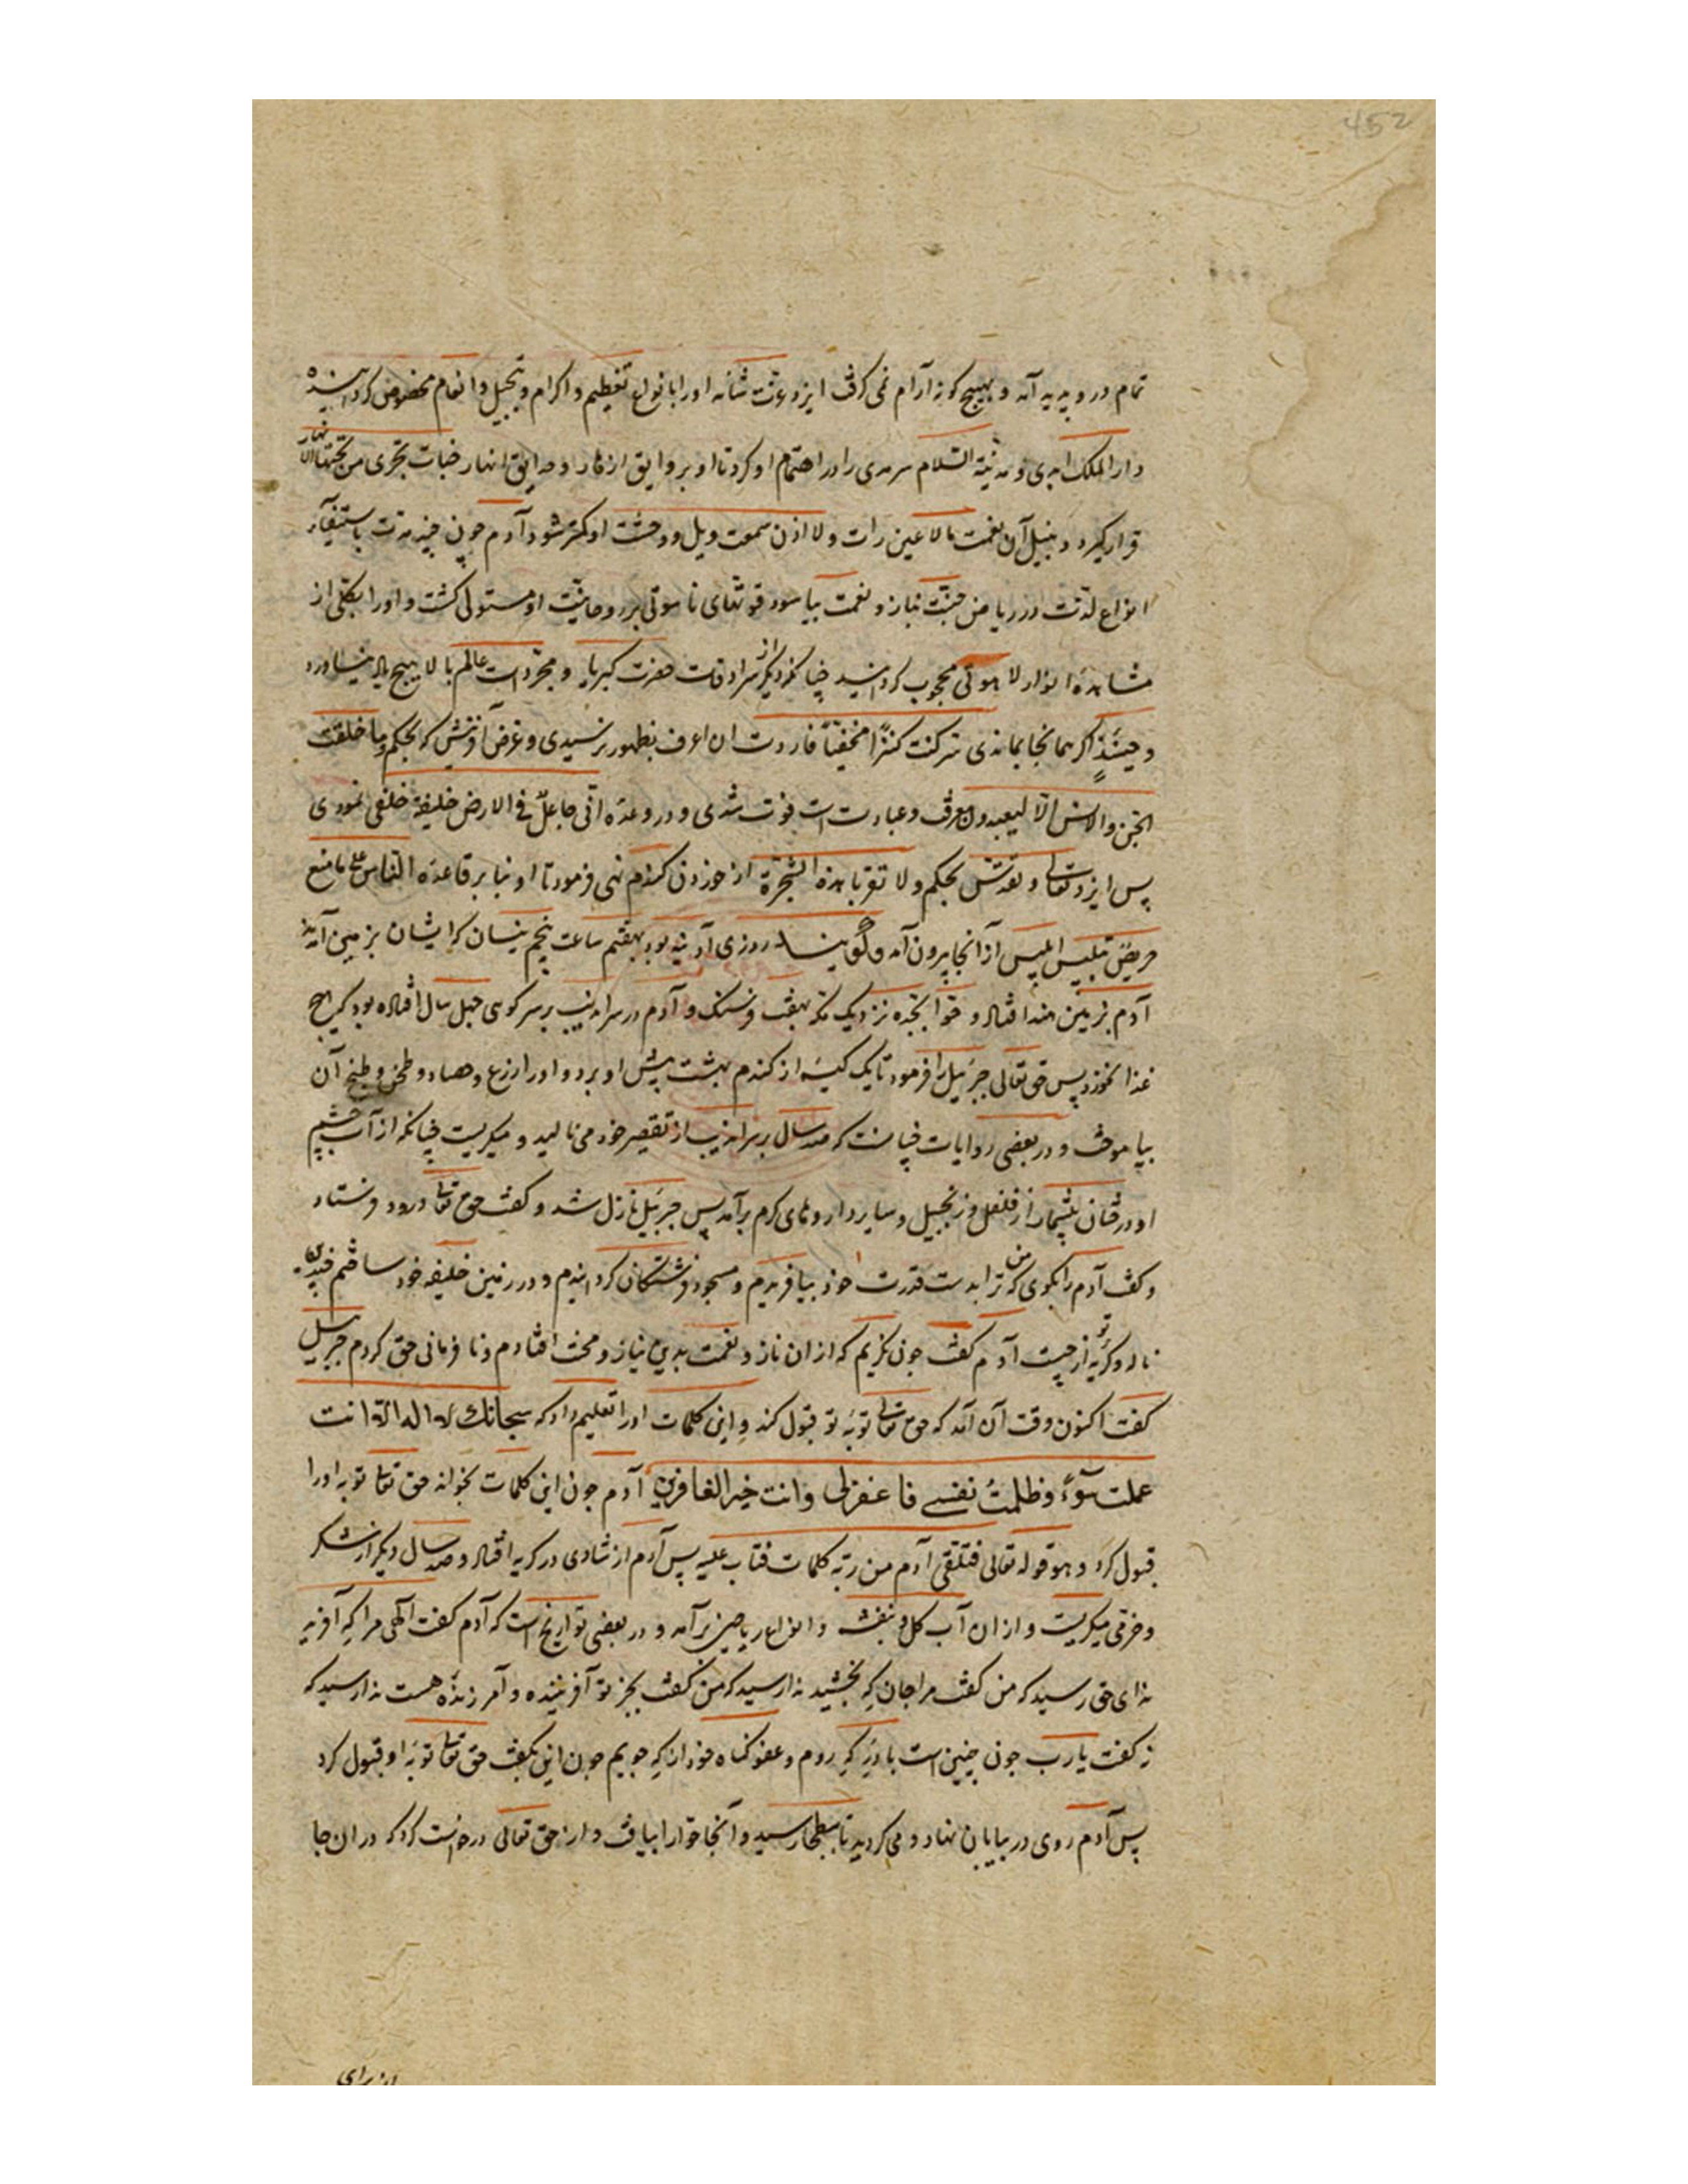 452
تمام در وی پدید آمد و بهیچ کونه آرام نمی کرفت ایزد عزّت شانه او را بانواع تعظیم و اکرام و تبجیل و انعام مخصوص کردانیده
دار الملک ابدی و مدینة السّلام سرمدی را در اهتمام او کرد تا او بر وایق ازهار و حدایق انهار جنات تجری من تحتها الانهار
قرار کیرد و بنیل آن نعمت مالا عین رات ولا اذن سمعت ویل و وحشت او کمتر شود آدم چون چند مدّت باستیفاء
انواع لذّت در ریاض جنّت بناز و نعمت بیاسود قوّتهای ناسوتی بر روحانیّت او مستولی کشت و او را بکلّی از
مشاهدهٔ انوار لاهوتی محجوب کردانید چنانکه دیکر از سرادقات حضرت کبریا و مجرّدات عالم بالا هیچ یاد نیاورد
و حینئذٍ اکر همانجا بماندی سرّ کنت کنزًا مخفیّاً فاردت ان اعرف بظهور نرسیدی و غرض آفرینش که بحکم وما خلقت
الجنّ والانس الّا لیعبدون معرفت و عبادتست فوت شدی و در وعدهٔ انّی جاعلٌ فی الارض خلیفة خلفی نمودی
پس ایزد تعالی و تقدّس بحکم ولا تقربا هذه الشّجرة از خوردن کندم نهی فرمود تا او بنا بر قاعدهٔ النّاس علی ما منع
حریصٌ بتلبیس ابلیس از آنجا بیرون آمد و کویند روزی آدینه بود بهفتم ساعت پنجم نیسان که ایشان بزمین آمدند
آدم بزمین هند افتاد و حوّا بجدّه نزدیک مکّه بهفت فرسنک و آدم در سراندیب بر سر کوهی چهل سال افتاده بود که هیچ
غذا نخورد پس حق تعالی جبرئیل را فرمود تا یک کیسه از کندم بهشت پیش او برد و او را زرع و حصاد و طحن و طبخ آن
بیاموخت و در بعضی روایات چنانست که صد سال بر سراندیب از تقصیر خود می نالید و میکریست چنانکه از آب چشم
او درختان بیشمار از فلفل و زنجبیل و سایر داروهای کرم برآمد پس جبرئیل نازل شد و کفت حق تعالی درود فرستاد
و کفت آدم را بکوی که من ترا بدست قدرت خود بیافریدم و مسجود فرشتکان کردانیدم و در زمین خلیفه خود ساختم چندین
ناله و کریه تو از چیست آدم کفت چون نکریم که از ان ناز و نعمت بدین نیاز و محنت افتادم و نافرمانی حق کردم جبرئیل
کفت اکنون وقت آن آمد که حق تعالی توبهٔ تو قبول کند و این کلمات او را تعلیم داد که سبحانک لا اله الا انت
عملت سوءً وظلمتُ نفسی فاغفرلی وانت خیر الغافرین آدم چون این کلمات بخواند حق تعالی توبه او را
قبول کرد و هو قوله تعالی فتلقّی آدم من ربّه کلمات فتاب علیه پس آدم از شادی در کریه افتاد و صد سال دیکر از شکر
و خرّمی میکریست و از ان آب کل و بنفشه و انواع ریاحین برآمد و در بعضی تواریخ است که آدم کفت الهی مرا که آفرید
ندای حق رسید که من کفت مرا جان که بخشید ندا رسید که من کفت بجز تو آفریننده و آمرزنده هست ندا رسید که
نه کفت یا رب چون چنین است با در که روم و عفو کناه خود از که جویم چون این بکفت حق تعالی توبهٔ او قبول کرد
پس آدم روی در بیابان نهاد و می کردید تا ببطحا رسید و آنجا حوّا را بیافت و از حق تعالی درخواست کرد که در ان جا